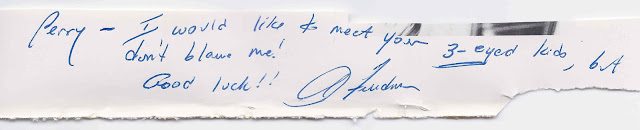 Perry - I would like to meet your 3-eyed kids, but
don't blame me!
Good luck!!